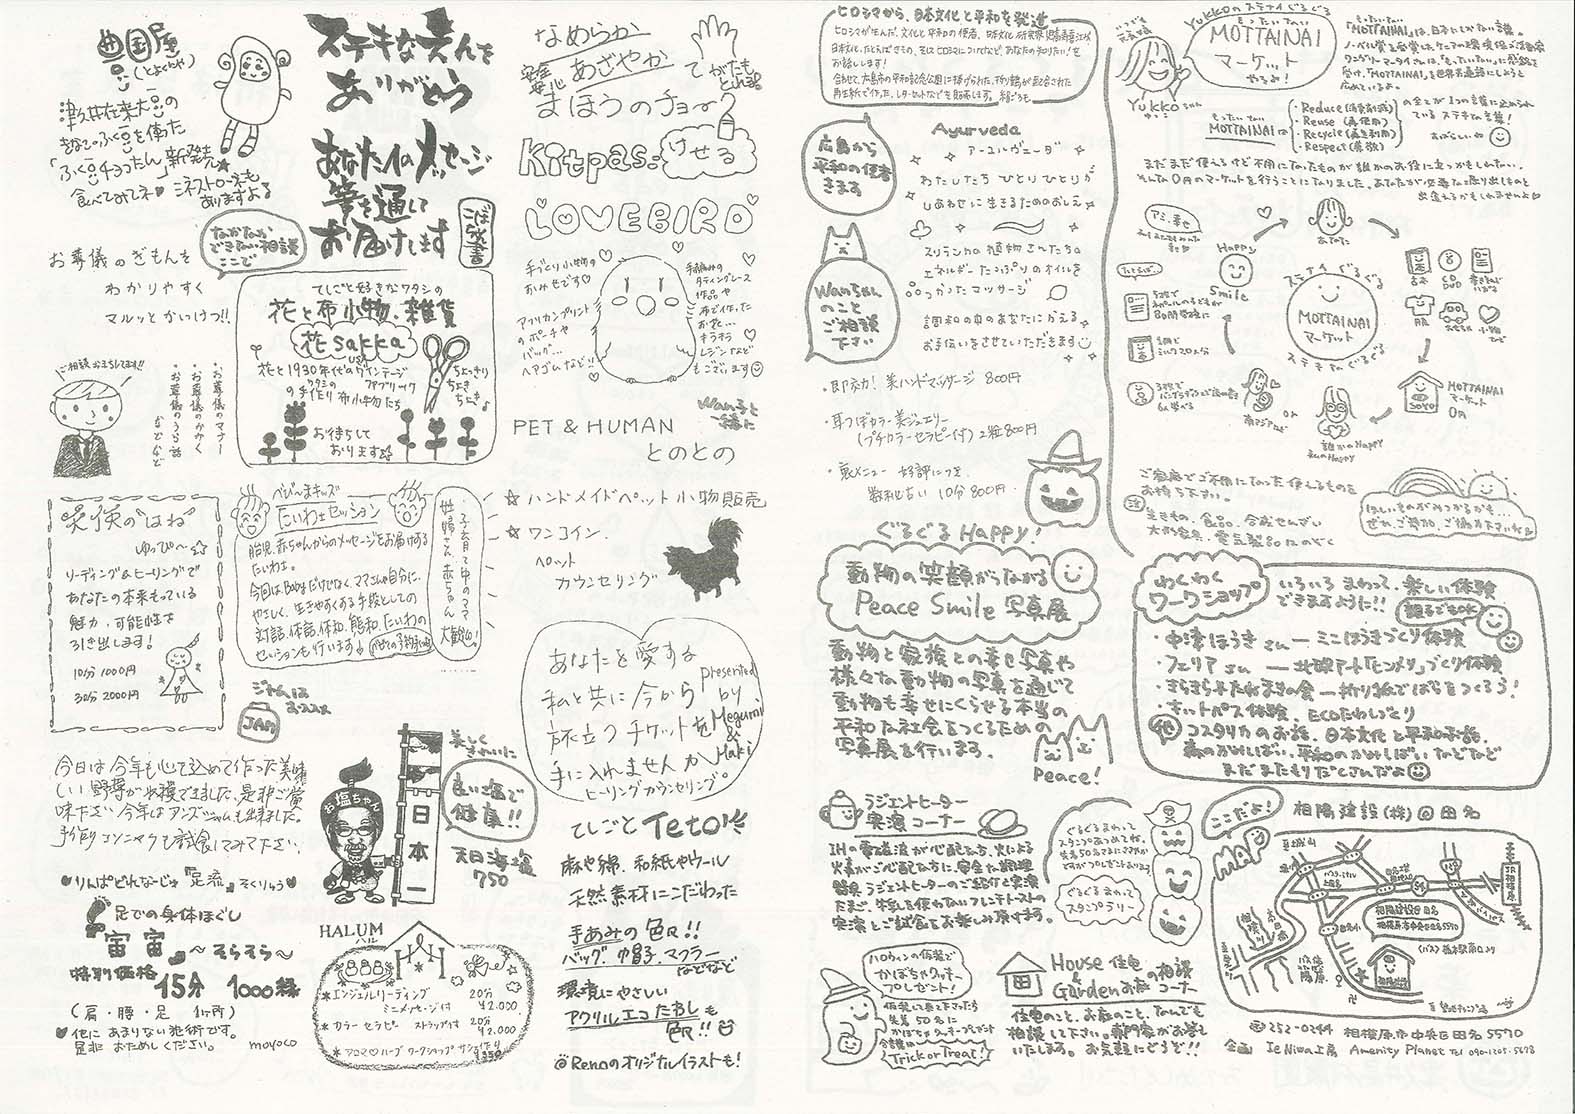 豊国屋
(とよくにや)
津久井在来大豆の
きなこのふく豆を使った
「ふく豆チョコたん」新発売
食べてみてネ
ミネストローネも
ありますよる
ステキなえんを
ありがとう
あなたへのメッセージ
筆を通して
お届けします
なかなか
できない相談
ここで
お葬儀のぎもんを
わかりやすく
マルッとかいけつ!!
ご相談お待ちしてます!!
・お葬儀のマナー
・お葬儀のうら話
などなど
てしごと好きなワタシの
花と布小物、雑貨
花sakka
花と1930年代のヴィンテージ
USA
ファブリック
の手作り布小物たち
ちょっきり
ちょき
ちょき♪
お待ちして
おります
天使の"はね"
ゆっぴ〜☆
リーディング&ヒーリングで
あなたの本来もっている
魅力、可能性を
引き出します!
10分 1000円
30分 2000円
べび〜まキッズ
たいわ士セッション
胎児、赤ちゃんからのメッセージをお届けする
たいわ士。
今回はBabyだけでなく、ママさんや自分に、
やさしく、生きやすくする手段としての
対話、体話、体和、態和、たいわの
セッションも行います♪
・子育て中のママ
妊婦さん、赤ちゃん
大歓迎!
ジャムは
おススメ
JAM
今日は今年も心を込めて作った美味
しい野菜が収穫できました、是非ご賞
味下さい 今年はアンズジャムも出来ました。
手作りコンニャクも試食してみて下さい、
お塩ちゃん
日本一
美しく
きれいに
良い塩で
健康!!
天日海塩
750
♥りんぱどれなーじゅ『足流』そくりゅう♥
足での身体ほぐし
『宙宙』〜そらそら〜
特別価格 15分 1000縁
(肩・腰・足 1ヶ所)
♥他にあまりない施術です。
是非おためしください。 moyoco
HALUM
ハル
★エンジェルリーディング 20分
ミニメッセージ付 ¥2,000
★カラーセラピー ストラップ付 20分
¥2,000
★アロマ♡ハーブワークショップ
なめらか
安全
安心
あざやか
てがたも
とれる。
まほうのチョーク
kitpas:けせる
LOVEBIRD
手づくり小物の
おみせです♡
アフリカンプリント
のポーチや
バッグ...
ヘアゴムなど!!
手編みの
タティングレース
作品や
布で作った
お花...
キラキラ
レジンなど
もございます☺
Wanちと
ご一緒に
PET & HUMAN
とのとの
☆ハンドメイドペット小物販売
☆ワンコイン
ペット
カウンセリング
あなたを愛する
私と共に今から
旅立つチケットを
手に入れませんか
ヒーリングカウンセリング
presented
by
Megumi
&
Maki
てしごと Teto!
麻や綿、和紙やウール
天然素材にこだわった
手あみの色々!!
バッグ、帽子、マフラー
などなど
環境にやさしい
アクリルエコたわしも
色々!!
@Renoのオリジナルイラストも!
ヒロシマから、日本文化と平和を発進
お話しします!
合わせて、広島市の平和記念公園に捧げられた、折り鶴が配合された
再生紙で作った、レターセットなども販売します。
広島から
平和の使者
きます
Ayurveda
アーユルヴェーダ
わたしたち ひとりひとりが
しあわせに生きるためのおしえ
スリランカの植物さんたちの
エネルギーたっぷりのオイルを
つかったマッサージ
調和の中のあなたにかえる
お手伝いをさせていただきます
Wanちゃん
のこと
ご相談
下さい
・即効力!美ハンドマッサージ 800円
・耳つぼカラー美ジュエリー
(プチカラーセラピー付) 2粒800円
・裏メニュー 好評につき
数秘占い 10分 800円
ぐるぐるHappy!
動物の笑顔がつながる
Peace Smile 写真展
動物と家族との幸せ写真や
様々な動物の写真を通じて
動物も幸せにくらせる本当の
平和な社会をつくるための
写真展を行います。
Peace!
ラジエントヒーター
実演コーナー
IHの電磁波が心配な方、火による
火事がご心配な方に、安全な調理
器具ラジエントヒーターのご紹介と実演
たまご、牛乳を使わないフレンチトーストの
実演とご試食をお楽しみ頂けます。
ぐるぐるまわって
スタンプあつめてね。
ぐるぐるまわって
スタンプラリー
ハロウィンの仮装で
かぼちゃクッキー
プレゼント!
仮装して来て下さったら
先着50名に
かぼちゃクッキープレゼント
合言葉は
Trick or Treat!
House 住宅
&
Gardenお庭
の相談
コーナー
住宅のこと、お庭のこと、なんでも
相談して下さい。専門家がお答え
いたします。お気軽にどうぞ!!
いつも
元気な
Yukkoちゃん
ゆっこ
Yukkoのステキぐるぐる
もったいない
MOTTAINAI
マーケット
やるよ!
「MOTTAINAI」は、日本にしかない言葉。
ノーベル賞を受賞した、ケニアの環境保護活動家
ワンガリ・マータイさんは、「もったいない」に感銘を
受け、「MOTTAINAI」を世界共通語にしようと
広めているよ。
もったいない
MOTTAINAIは
・Reduce(消費削減)
・Reuse(再使用)
・Recycle(再生利用)
・Respect(尊敬)
の全てが1つの言葉に込められ
ているステキな言葉!
まだまだ使えるけど不用になったものが誰かのお役に立つかもしれない。
そんな0円のマーケットを行うことになりました。あなたが必要な掘り出しものと
出逢えるかもしれませんよ
あなた
Happy
Smile
ステキぐるぐる
MOTTAINAI
マーケット
ステキぐるぐる
古本
CD
DVD
服
小物
など
MOTTAINAI
マーケット
0円
SOYO
誰かのHappy
私のHappy
ご家庭でご不用になった使えるものを
お持ち下さい。
注
生きもの、食品、合成せんざい
大きな家具、電気製品はのぞく
ほしいものがみつかるかも...
ぜひ、ご参加、ご協力下さいね
わくわく
ワークショップ
いろいろまわって、楽しい体験
できますように!!
親子でもOK
・中津ほうきさん ― ミニほうきづくり体験
・フェリアさん ― 北欧アート「ヒンメリ」づくり体験
・きらきら☆たねまきの会 ― 折り紙でばらをつくろう!
・キットパス体験、ECOたわしづくり
他
コスタリカのお話、日本文化と平和のお話、
森のかみしばい、平和のかみしばいなどなど
まだまだもりだくさんだよ☺
ここだよ!
MAP
相陽建設(株)@田名
JR相模原
相陽建設@田名
相模原市中央区田名5570
☎252-0244 相模原市中央区田名5570
企画 IeNiwa工房 Amenity Planet Tel 090-1205-5678